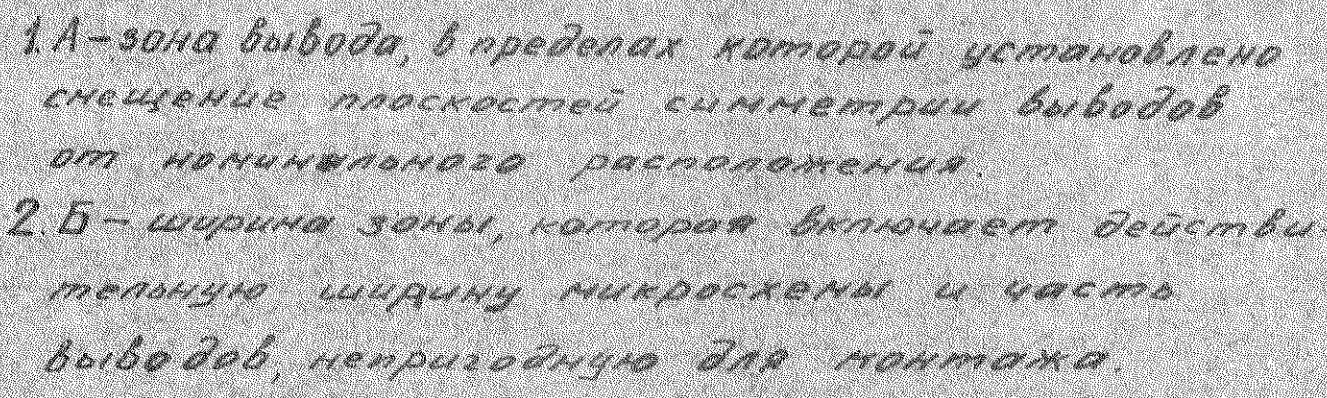 1. А – зона вывода, в пределах которой установлено
смещение плоскостей симметрии выводов
от номинального расположения.
2. Б – ширина зоны, которая включает действи-
тельную ширину микросхемы и часть
выводов, непригодную для монтажа.